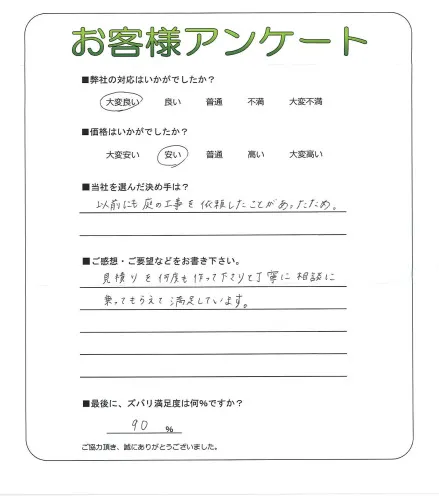 お客様アンケート
■弊社の対応はいかがでしたか?
大変良い 良い 普通 不満 大変不満
■価格はいかがでしたか?
大変安い 安い 普通 高い 大変高い
■当社を選んだ決め手は?
以前にも庭の工事を依頼したことがあったため。
■ご感想・ご要望などをお書き下さい。
見積りを何度も作って下さりて丁寧に相談に
乗ってもらえて満足しています。
■最後に、ズバリ満足度は何%ですか?
90 %
ご協力頂き、誠にありがとうございました。